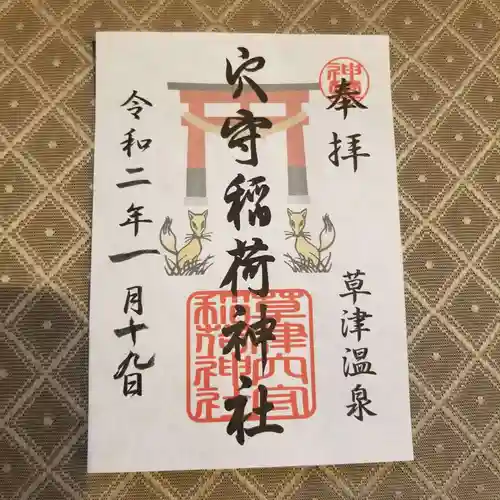 奉拝
草津温泉
穴守稲荷神社
令和二年一月十九日
草津穴守
稲荷神社